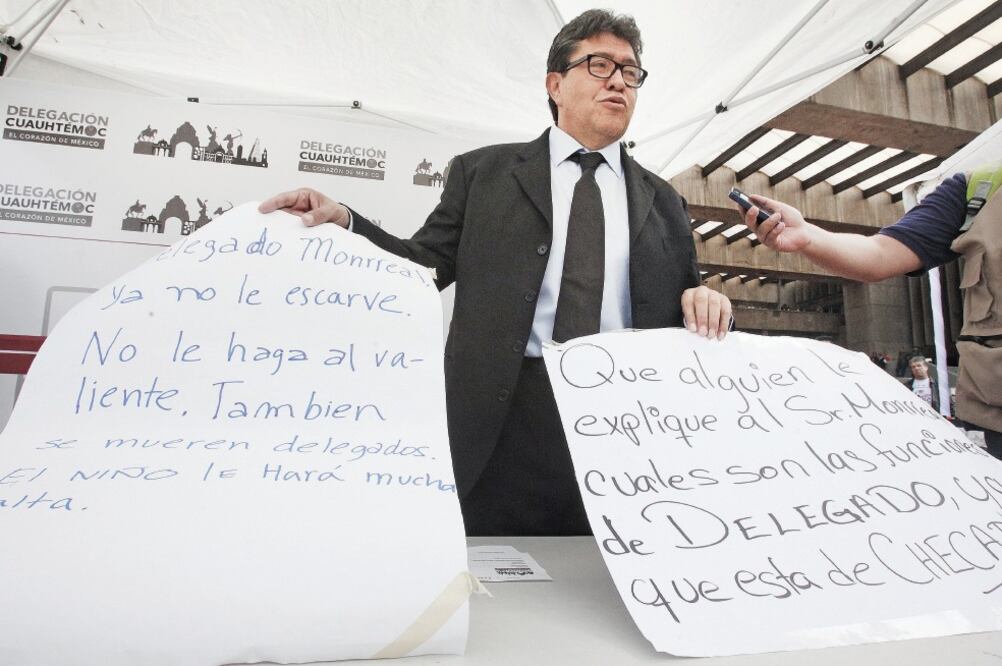 DELEGACIÓN
CUAUHTÉMOC
EL CORAZÓN DE MÉXICO
DELEGACIÓN
CUAUHTÉMOC
EL CORAZÓN DE MÉXICO
DELEGACIÓN
CUAUHTÉMOC
EL CORAZÓN DE MÉXICO
elegado Monrreal!
ya no le escarve.
No le haga al va-
liente. Tambien
se mueren delegados.
El NIÑO le Hará mucha
alta.
Que alguien le
explique al Sr. Monrrea
cuales son las funciones
de DELEGADO, ya
que esta de CHECA